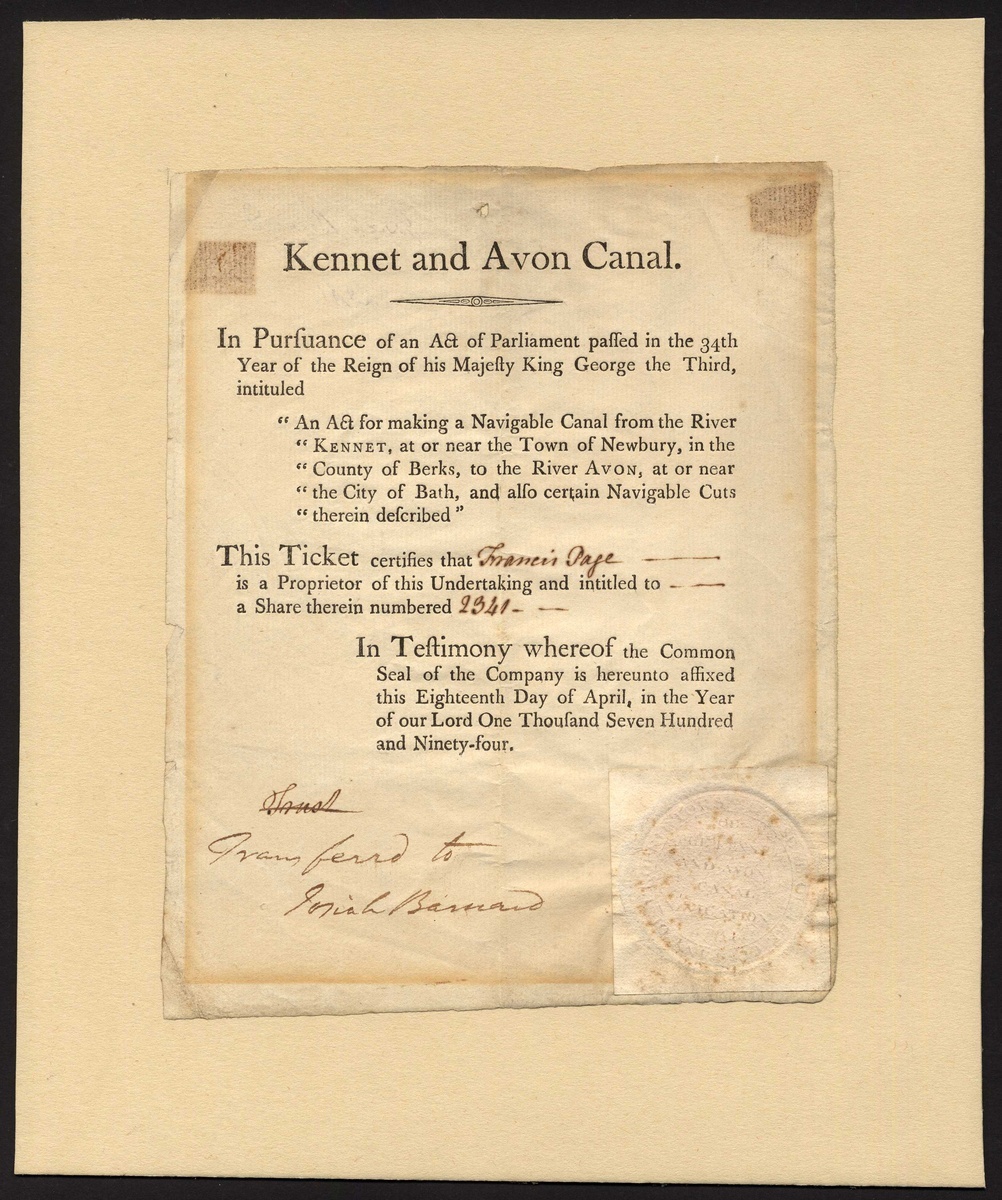 Kennet and Avon Canal.
In Purſuance of an Act of Parliament paſſed in the 34th
Year of the Reign of his Majeſty King George the Third,
intituled
“ An Act for making a Navigable Canal from the River
“ KENNET, at or near the Town of Newbury, in the
“ County of Berks, to the River AVON, at or near
“ the City of Bath, and alſo certain Navigable Cuts
“ therein deſcribed”
This Ticket certifies that Francis Page ——
is a Proprietor of this Undertaking and intitled to — —
a Share therein numbered 2341 - —
In Teſtimony whereof the Common
Seal of the Company is hereunto affixed
this Eighteenth Day of April, in the Year
of our Lord One Thouſand Seven Hundred
and Ninety-four.
Trust
Transferrd to
Josiah Barnard
CANAL